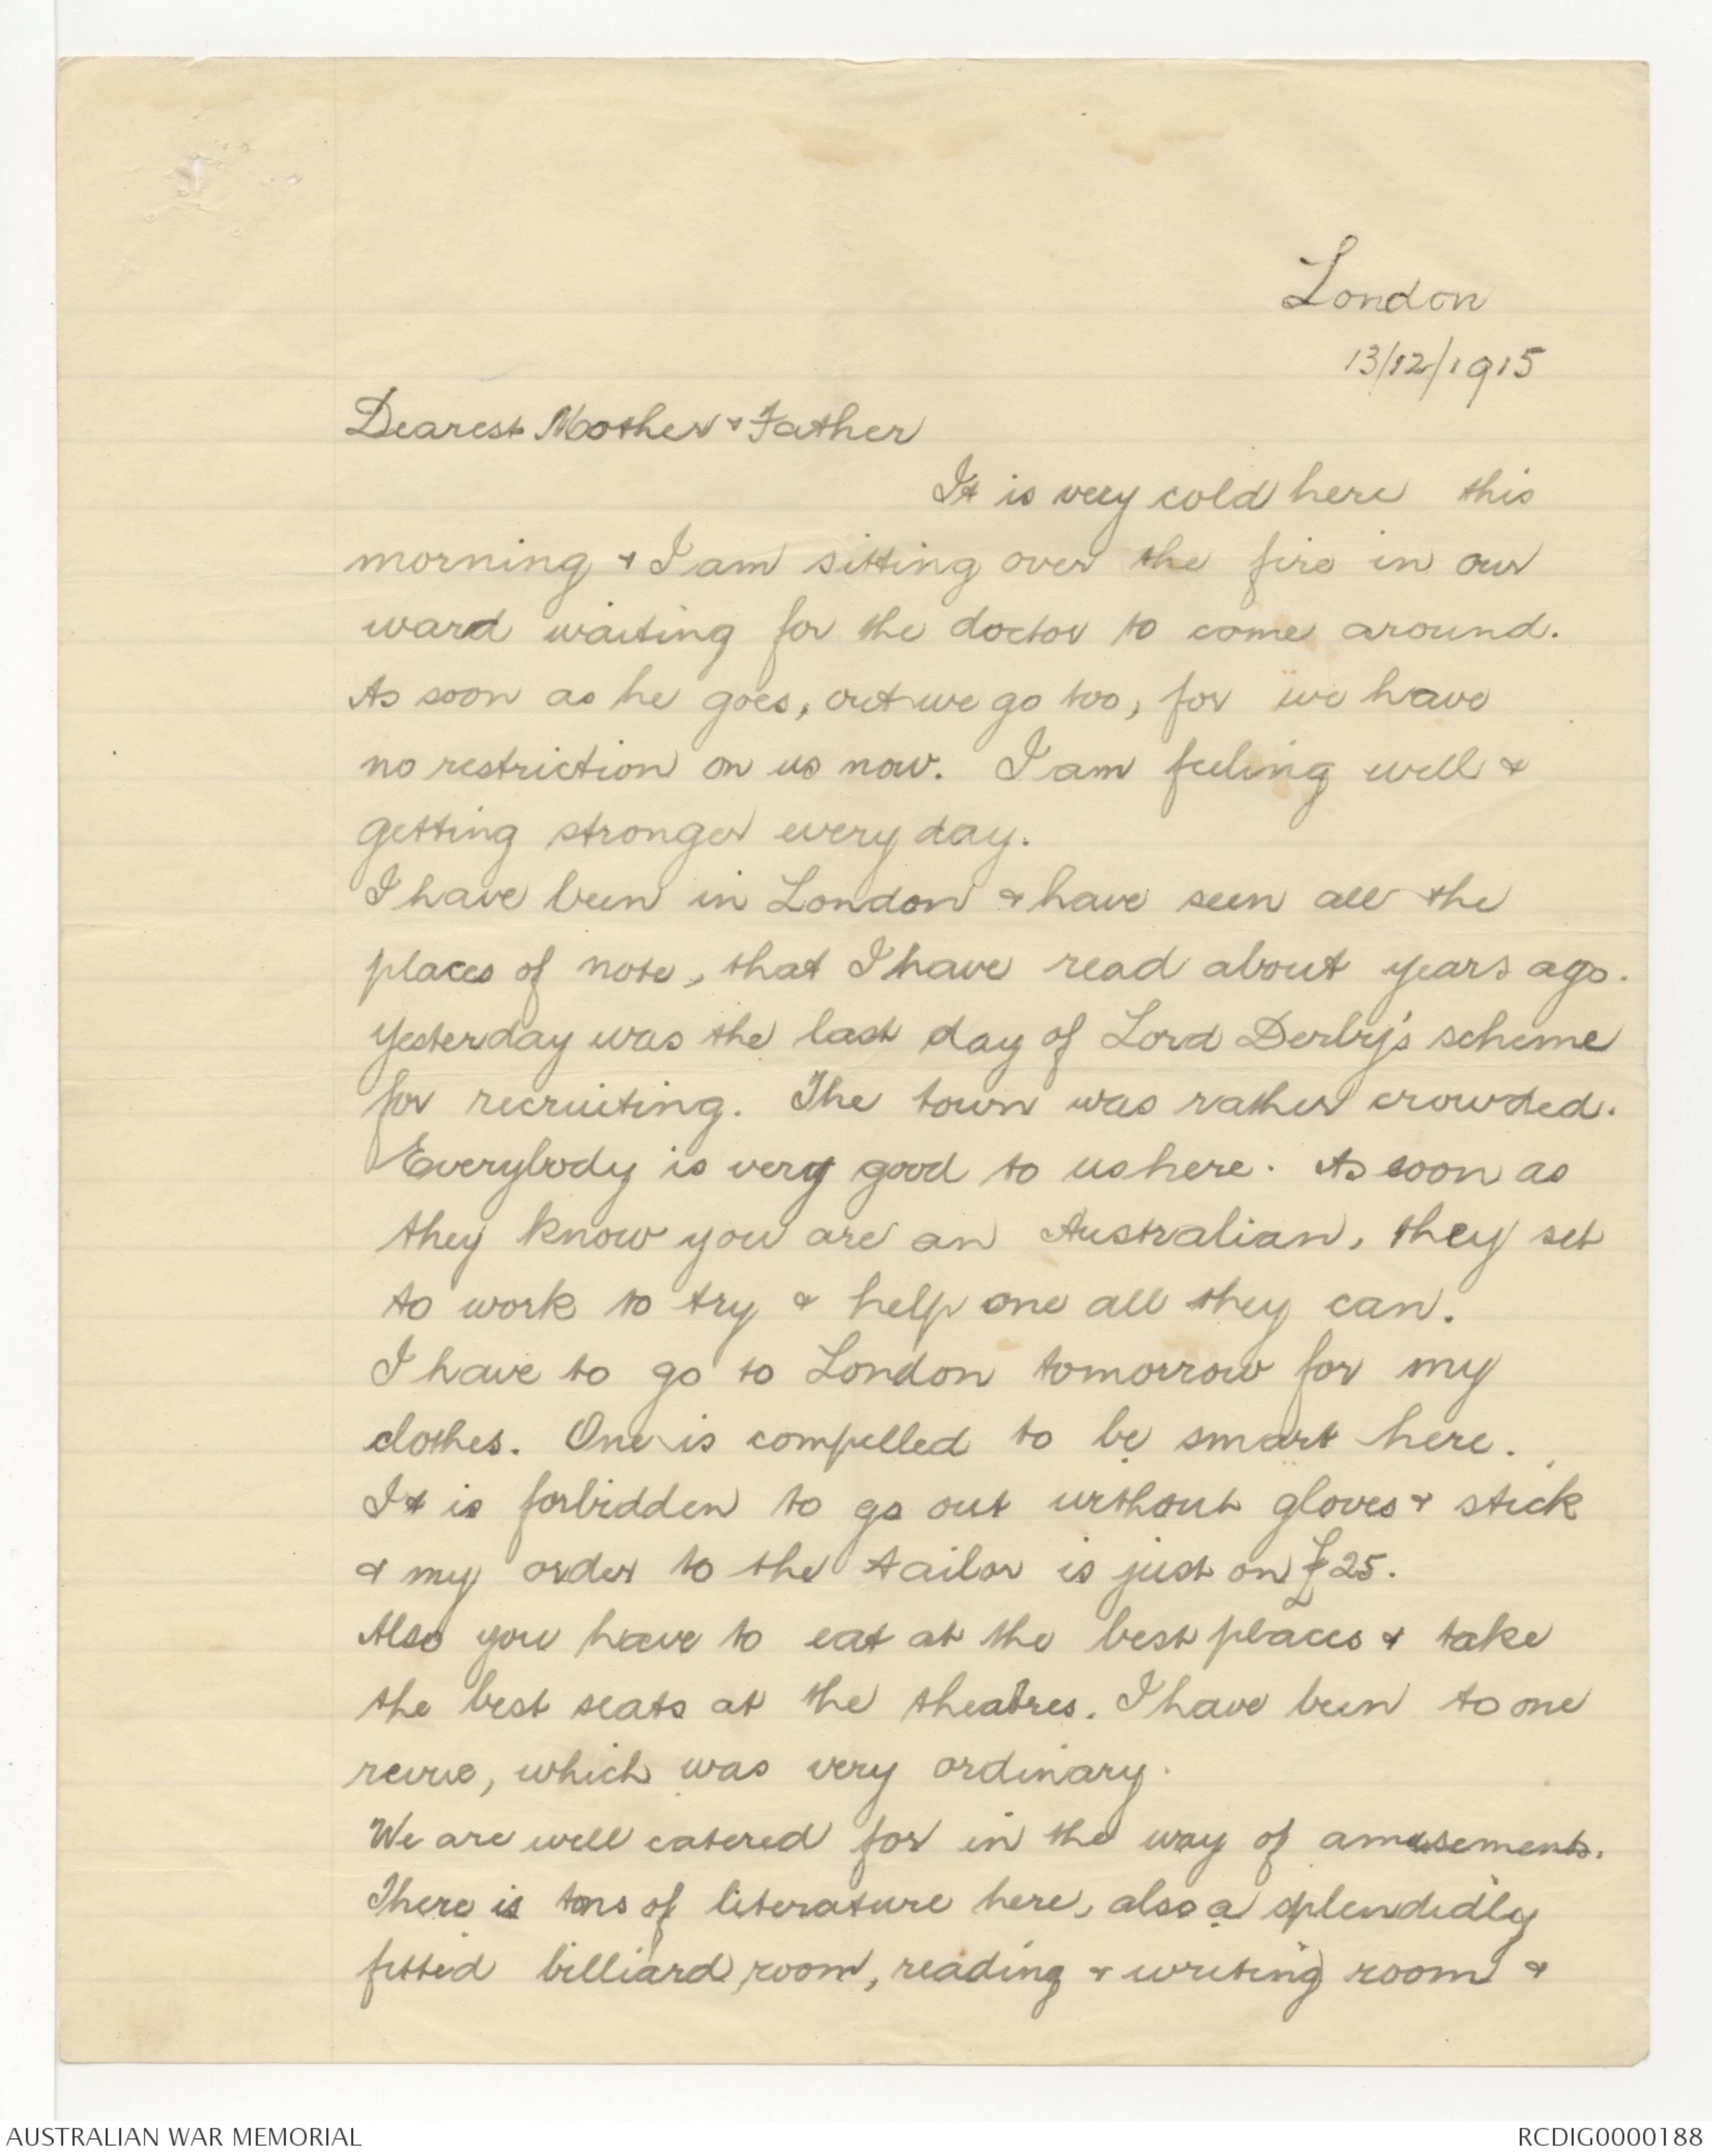 London
13/12/1915
Dearest Mother & Father
It is very cold here this
morning & I am sitting over the fire in our
ward waiting for the doctor to come around.
As soon as he goes, out we go too, for we have
no restriction on us now. I am feeling well &
getting stronger every day.
I have been in London & have seen all the
places of note, that I have read about years ago.
Yesterday was the last day of Lord Derby's scheme
for recruiting. The town was rather crowded.
Everybody is very good to us here. As soon as
they know you are an Australian, they set
to work to try & help one all they can.
I have to go to London tomorrow for my
clothes. One is compelled to be smart here.
It is forbidden to go out without gloves & stick
& my order to the tailor is just on £25.
Also you have to eat at the best places & take
the best seats at the theatres. I have been to one
revue, which was very ordinary.
We are well catered for in the way of amusements.
There is tons of literature here, also a splendidly
fitted billiard room, reading & writing room &
AUSTRALIAN WAR MEMORIAL
RCDIG0000188